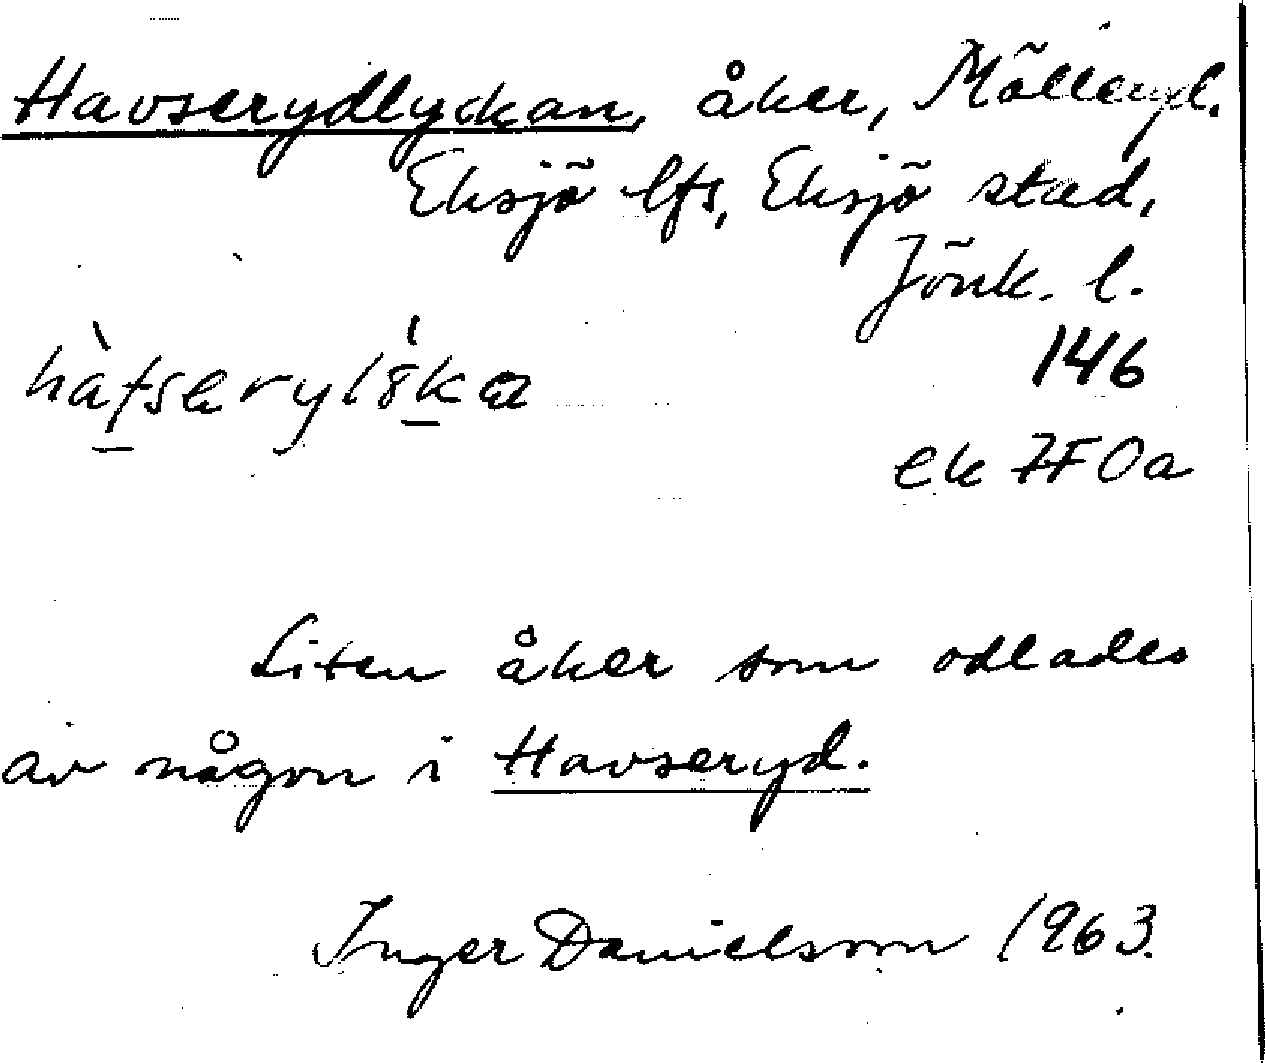 Havserydlyckan, åker, Mölleryd.
Eksjö lfs, Eksjö stad,
Jönk. l.
hàfserylỏka
146
ek 7F0a
Liten åker som odlades
av någon i Havseryd.
Inger Danielsson 1963.